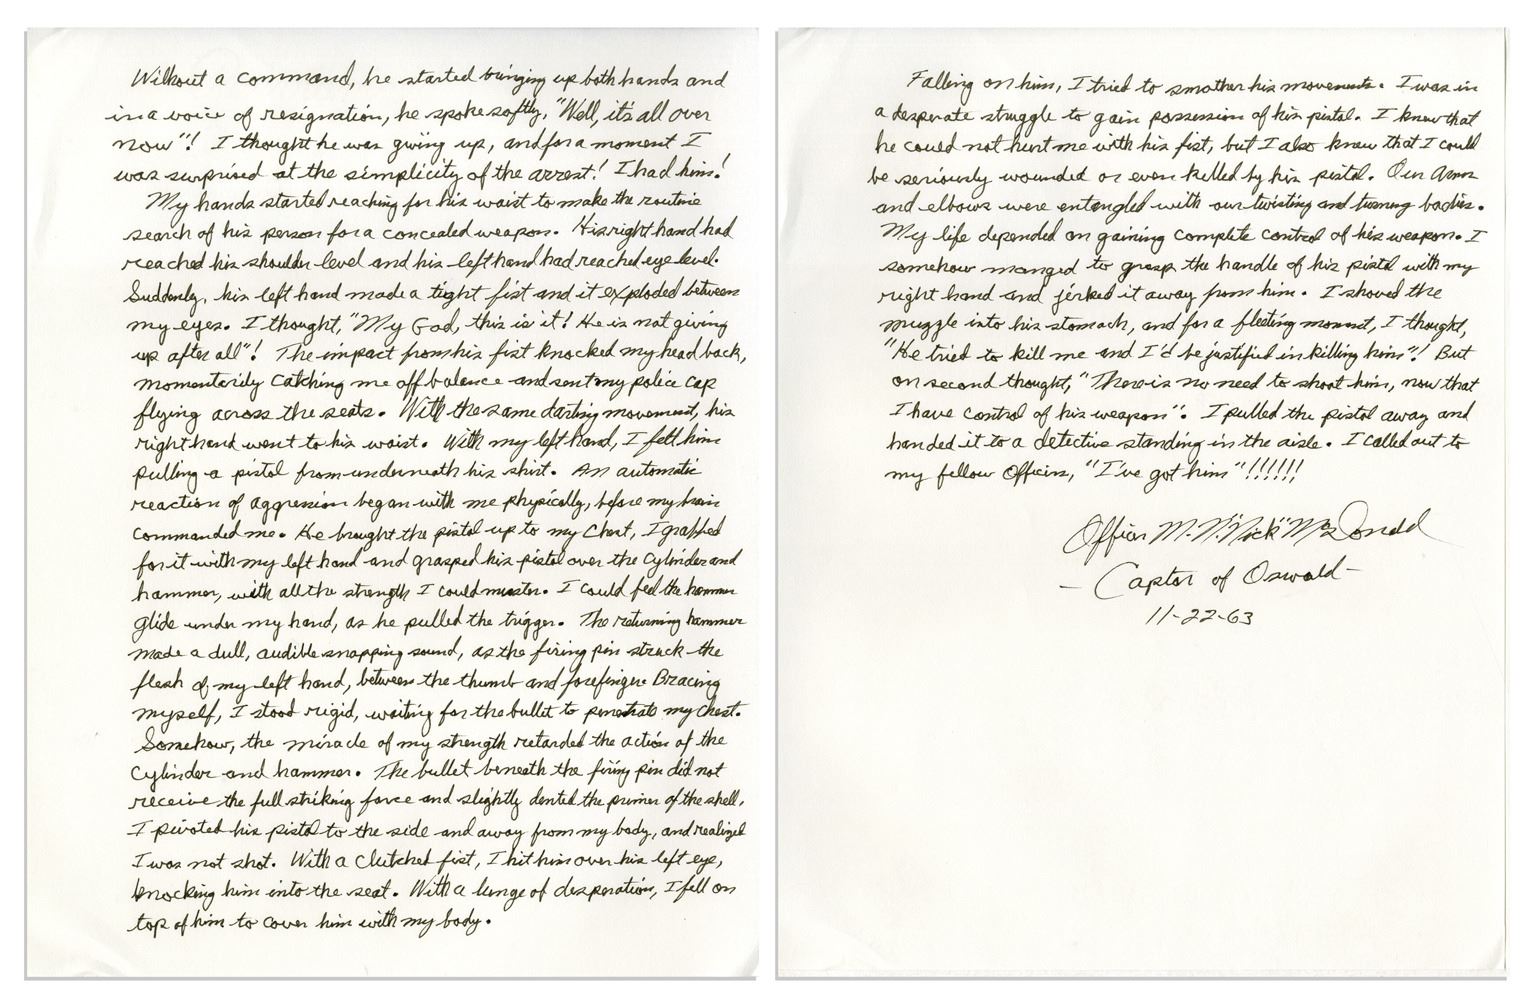 Without a command, he started bringing up both hands and
in a voice of resignation, he spoke softly, "Well, it's all over
now"! I thought he was giving up, and for a moment I
was surprised at the simplicity of the arrest! I had him!
My hands started reaching for his waist to make the routine
search of his person for a concealed weapon. His right hand had
reached his shoulder level and his left hand had reached eye level.
Suddenly, his left hand made a tight fist and it exploded between
my eyes. I thought, "My God, this is it! He is not giving
up after all"! The impact from his fist knocked my head back,
momentarily catching me off balance and sent my police cap
flying across the seats. With the same darting movement, his
right hand went to his waist. With my left hand, I felt him
pulling a pistol from underneath his shirt. An automatic
reaction of aggression began with me physically, before my brain
commanded me. He brought the pistol up to my chest, I grabbed
for it with my left hand and grasped his pistol over the cylinder and
hammer, with all the strength I could muster. I could feel the hammer
glide under my hand, as he pulled the trigger. The returning hammer
made a dull, audible snapping sound, as the firing pin struck the
flesh of my left hand, between the thumb and forefinger. Bracing
myself, I stood rigid, waiting for the bullet to penetrate my chest.
Somehow, the miracle of my strength retarded the action of the
cylinder and hammer. The bullet beneath the firing pin did not
receive the full striking force and slightly dented the primer of the shell.
I pivoted his pistol to the side and away from my body, and realized
I was not shot. With a clutched fist, I hit him over his left eye,
knocking him into the seat. With a lunge of desperation, I fell on
top of him to cover him with my body.
Falling on him, I tried to smother his movements. I was in
a desperate struggle to gain possession of his pistol. I knew that
he could not hurt me with his fist, but I also knew that I could
be seriously wounded or even killed by his pistol. Our arms
and elbows were entangled with our twisting and turning bodies.
My life depended on gaining complete control of his weapon. I
somehow manged to grasp the handle of his pistol with my
right hand and jerked it away from him. I shoved the
muzzle into his stomach, and for a fleeting moment, I thought,
"He tried to kill me and I'd be justified in killing him"! But
on second thought, "There is no need to shoot him, now that
I have control of his weapon". I pulled the pistol away and
handed it to a detective standing in the aisle. I called out to
my fellow Officers, "I've got him"!!!!!!
Officer M. N. "Nick" McDonald
- Captor of Oswald -
11-22-63